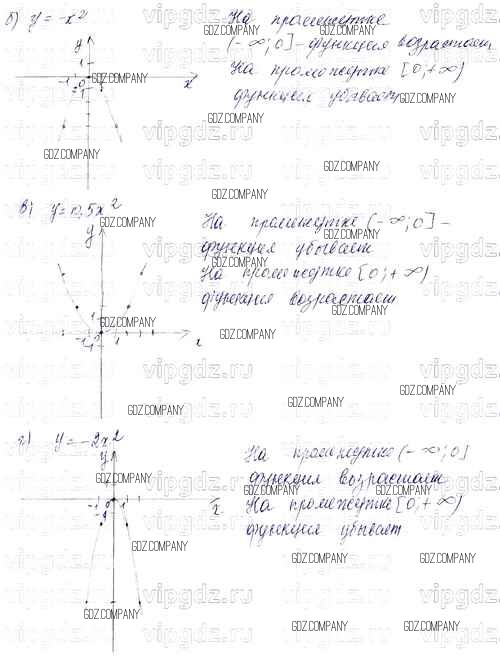 б) y = -x²
На промежутке
(-∞; 0] - функция возрастает
На промежутке [0; +∞)
функция убывает
y
1
-1 0
x
в) y = 0,5x²
На промежутке (-∞; 0] -
функция убывает
На промежутке [0; +∞)
функция возрастает
y
1
-1 0 1
-1
x
г) y = -2x²
На промежутке (-∞; 0]
функция возрастает
На промежутке [0; +∞)
функция убывает
y
-1 0 1
x
GDZ.COMPANY
vipgdz.ru